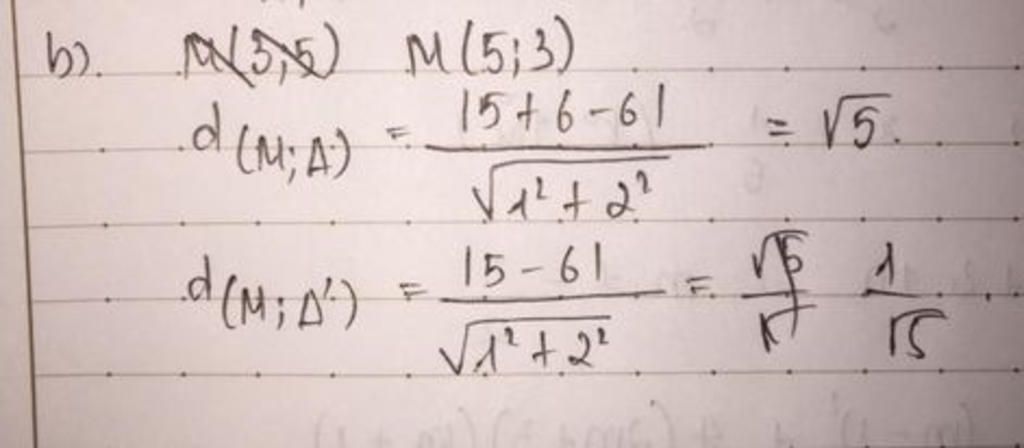 b). M(3;5) M(5;3)
d(M;Δ) = |5+6-6| / √(1²+2²) = √5.
d(M;Δ') = |5-6| / √(1²+2²) = 1/√5